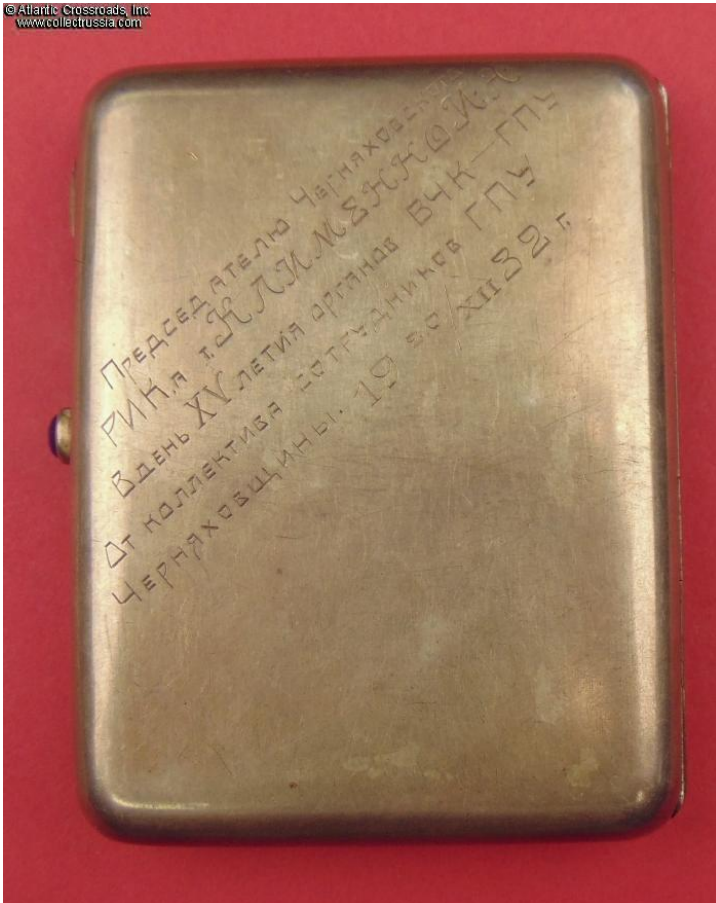 © Atlantic Crossroads, Inc.
www.collectrussia.com
Председателю Черняховского
РИК,а т. КЛИМЕНКО И.Н
В день XV летия органов ВЧК—ГПУ
От коллектива сотрудников ГПУ
Черняховщины. 19 20/XII 32 г.